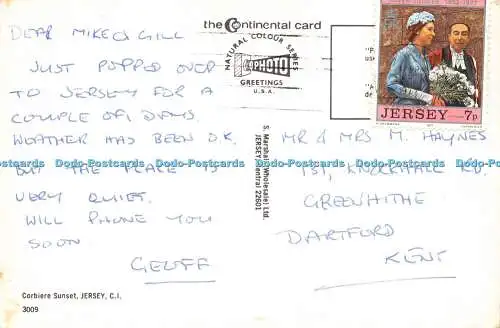 the Continental card
DEAR MIKE & GILL
JUST POPPED OVER
TO JERSEY FOR A
COUPLE OF DAYS
WEATHER HAS BEEN O.K.
BUT THE PLACE IS
VERY QUIET.
WILL PHONE YOU
SOON
GEOFF
Corbiere Sunset, JERSEY, C.I.
3009
NATURAL COLOUR SERIES
PHOTO
GREETINGS
U.S.A.
S. Marshall (Wholesale) Ltd.
JERSEY Central 22601
JERSEY 7p
MR & MRS M. HAYNES
131, KNOCKHALL RD.
GREENHITHE
DARTFORD
KENT
Dodo-Postcards Dodo-Postcards Dodo-Postcards Dodo-Postcards Dodo-Postcards